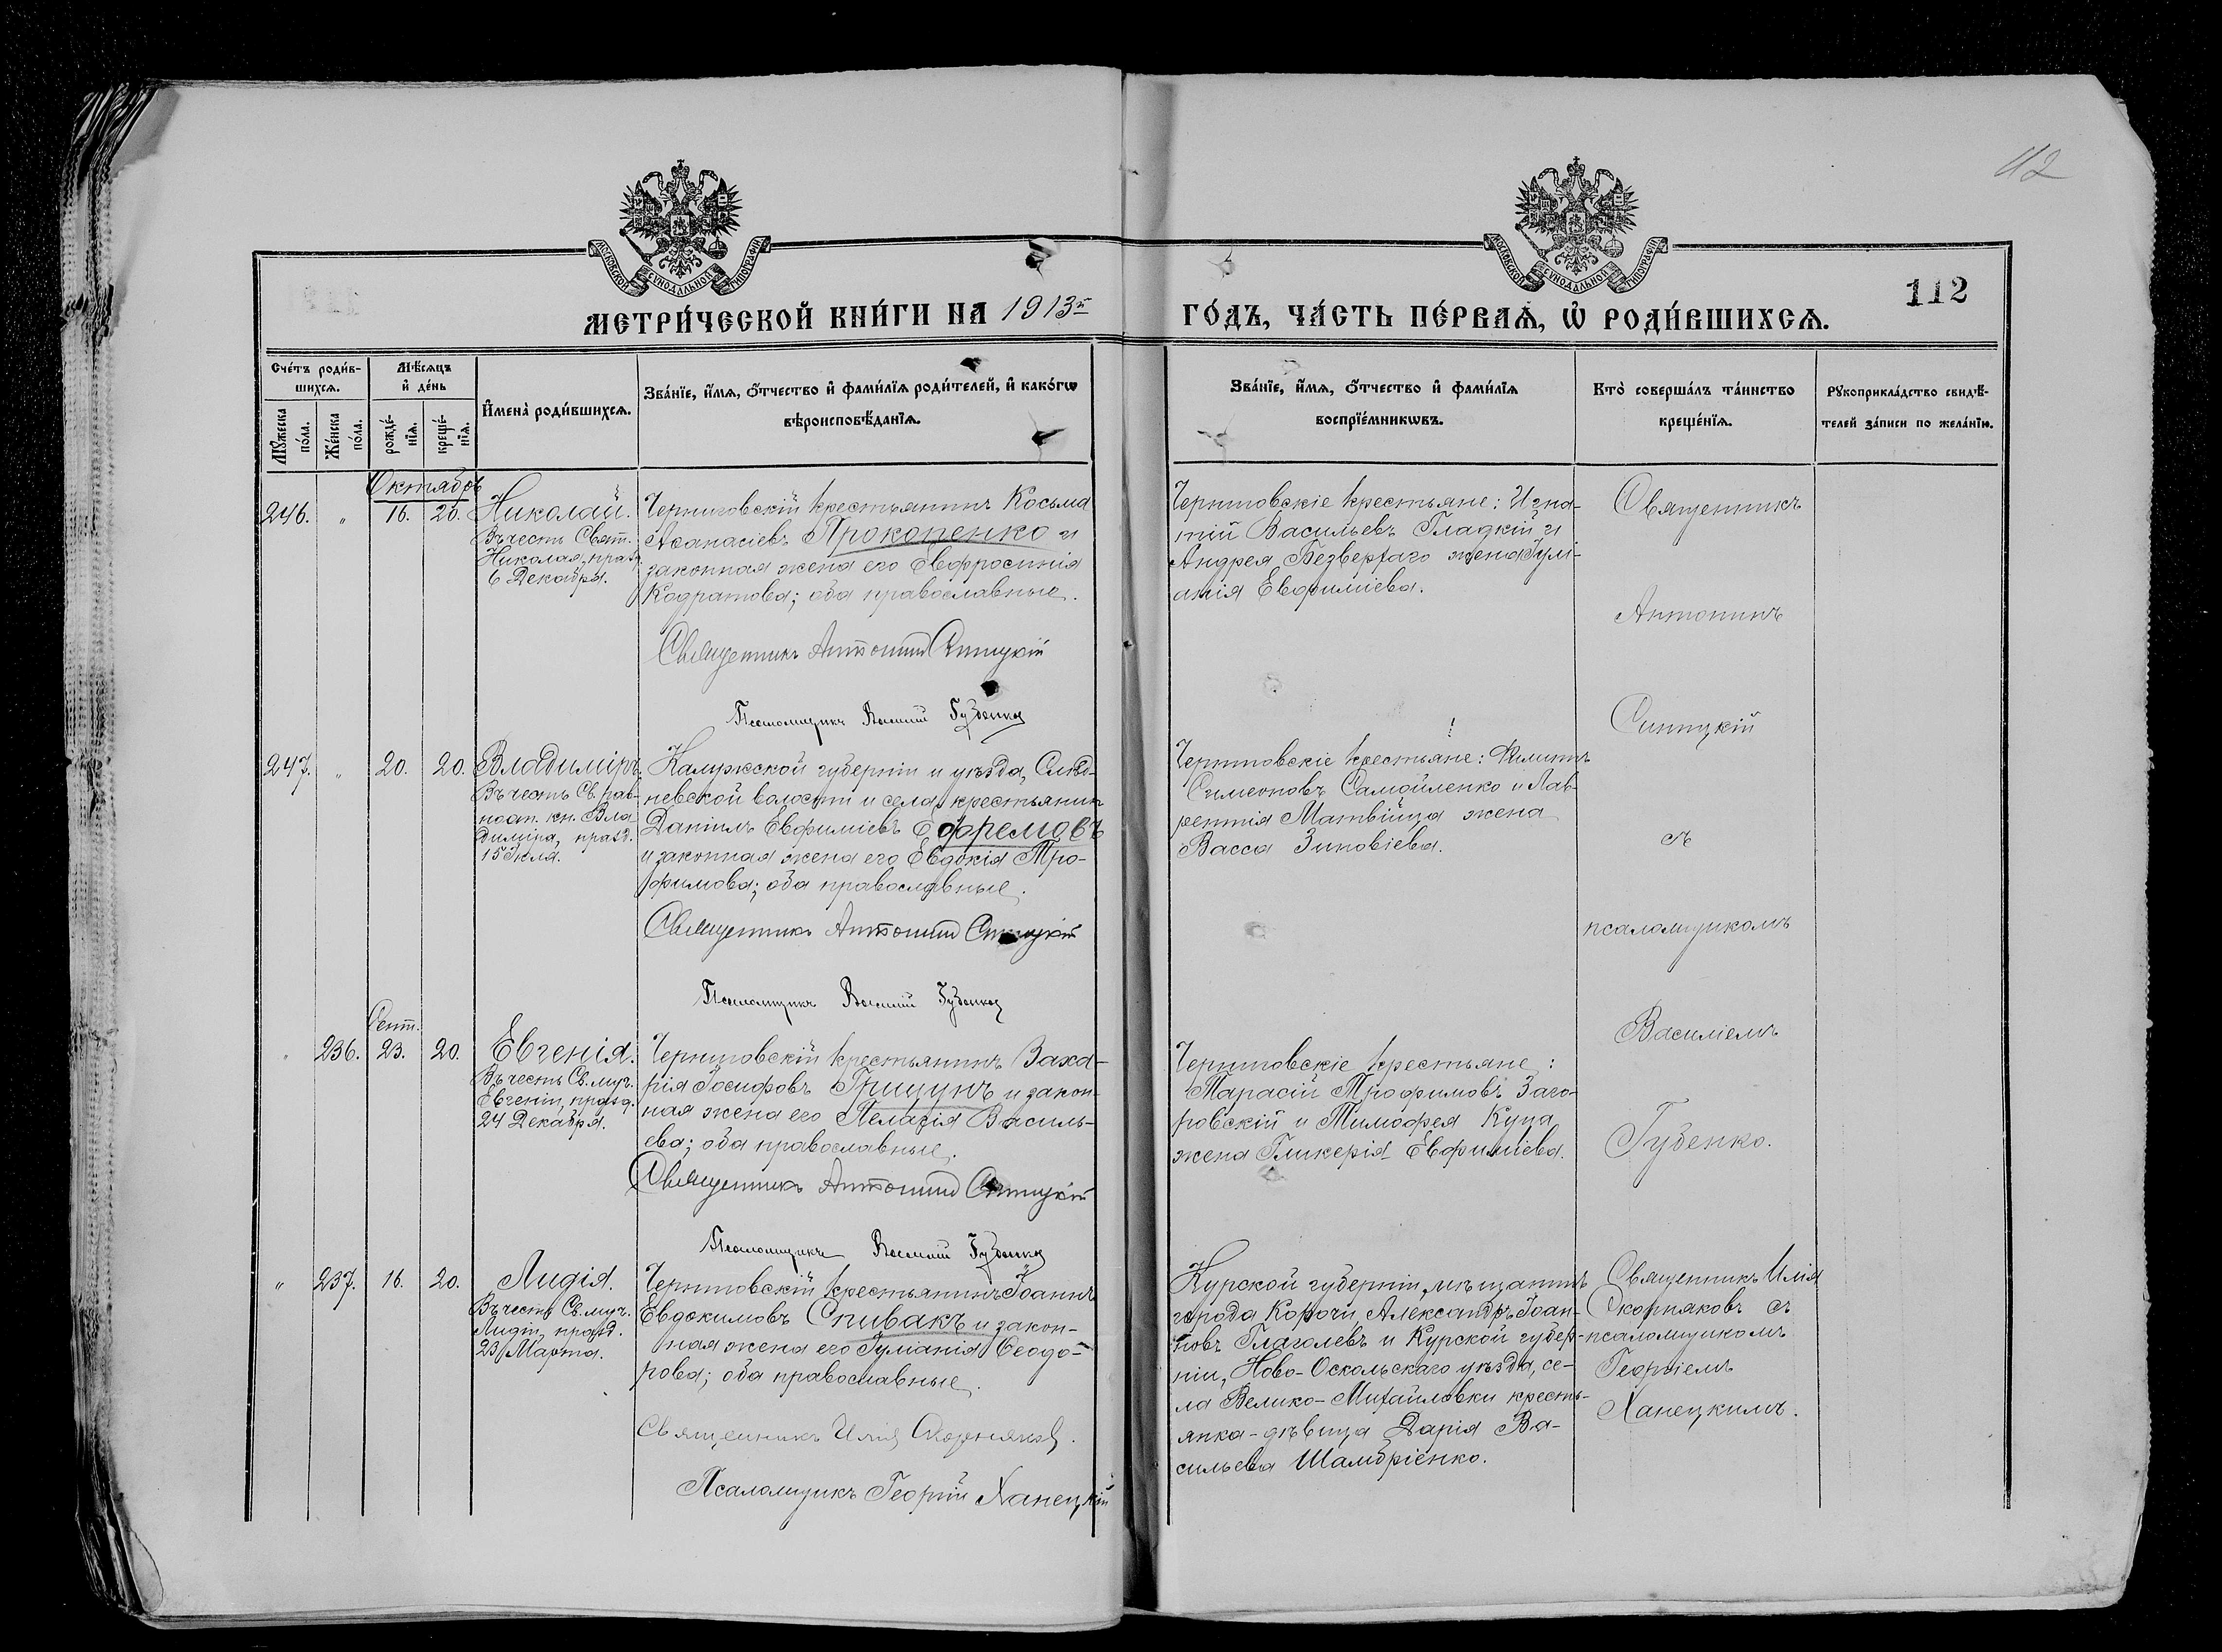 112
МОСКОВСКОЙ СѴНОДАЛЬНОЙ ТИПОГРАФІИ
МОСКОВСКОЙ СѴНОДАЛЬНОЙ ТИПОГРАФІИ
112
МЕТРИ́ЧЕСКОЙ КНИ́ГИ НА 1913й
ГО́ДЪ, ЧА́СТЬ ПЕ́РВАѦ, Ѡ҆ РОДИ́ВШИХСѦ.
Сче́тъ роди́в-
шихсѧ.
Мѣ́сѧцъ
и҆ де́нь
Мꙋ́жеска по́ла.
Же́нска по́ла.
рожде́-нїѧ.
креще́-нїѧ.
И҆мена̀ роди́вшихсѧ.
Зва́нїе, и҆́мѧ, ѻ҆́тчество и҆ фами́лїѧ роди́телей, и҆ како́гѡ
вѣроисповѣ́данїѧ.
Зва́нїе, и҆́мѧ, ѻ҆́тчество и҆ фами́лїѧ
воспрїе́мникѡвъ.
Кто̀ соверша́лъ та́инство
креще́нїѧ.
Рꙋкоприкла́дство свидѣ́-
телей за́писи по жела́нїю.
Октябрь
246. " 16. 20. Николай.
Въ честь Свят.
Николая, празд.
6 Декабря.
Черниговскій крестьянинъ Косьма
Аѳанасіевъ Прокопенко и
законная жена его Евфросинія
Кодратова; оба православные.
Священникъ Антонинъ Синицкій
Псаломщикъ Василій Губенко
Черниговскіе крестьяне: Игна-
тій Васильевъ Гладкій и
Андрея Безверхаго жена Іулі-
анія Евфиміева.
Священникъ
Антонинъ
Синицкій
съ
псаломщикомъ
Василіемъ
Губенко.
247. " 20. 20. Владиміръ.
Въ честь Св. рав-
ноап. кн. Вла-
диміра, празд.
15 Іюля.
Калужской губерніи и уѣзда,
невской волости и села крестьянинъ
Даніилъ Евфиміевъ Ефремовъ
и законная жена его Евдокія Тро-
фимова; оба православные.
Священникъ Антонинъ Синицкій
Псаломщикъ Василій Губенко
Черниговскіе крестьяне: Филиппъ
Симеоновъ Самойленко и Лав-
рентія Матвійца жена
Васса Зиновіева.
Сент.
" 236. 23. 20. Евгенія.
Въ честь Св. муч.
Евгеніи, празд.
24 Декабря.
Черниговскій крестьянинъ Заха-
рія Іосифовъ Грицунъ и закон-
ная жена его Пелагія Василь-
ева; оба православные.
Священникъ Антонинъ Синицкій
Псаломщикъ Василій Губенко
Черниговскіе крестьяне:
Тарасій Трофимовъ Заго-
ровскій и Тимофея Куца
жена Гликерія Евфиміева.
" 237. 16. 20. Лидія.
Въ честь Св. муч.
Лидіи, празд.
23 Марта.
Черниговскій крестьянинъ Іоаннъ
Евдокимовъ Спивакъ и закон-
ная жена его Іуліанія Ѳеодо-
рова; оба православные.
Священникъ Илія Скорняковъ.
Псаломщикъ Георгій Ханецкій
Курской губерніи, мѣщанинъ
города Корочи, Александръ Іоан-
новъ Глаголевъ и Курской губер-
ніи, Ново-Оскольскаго уѣзда, се-
ла Велико-Михайловки кресть-
янка-дѣвица Дарія Ва-
сильева Шамбріенко.
Священникъ Илія
Скорняковъ съ
псаломщикомъ
Георгіемъ
Ханецкимъ.